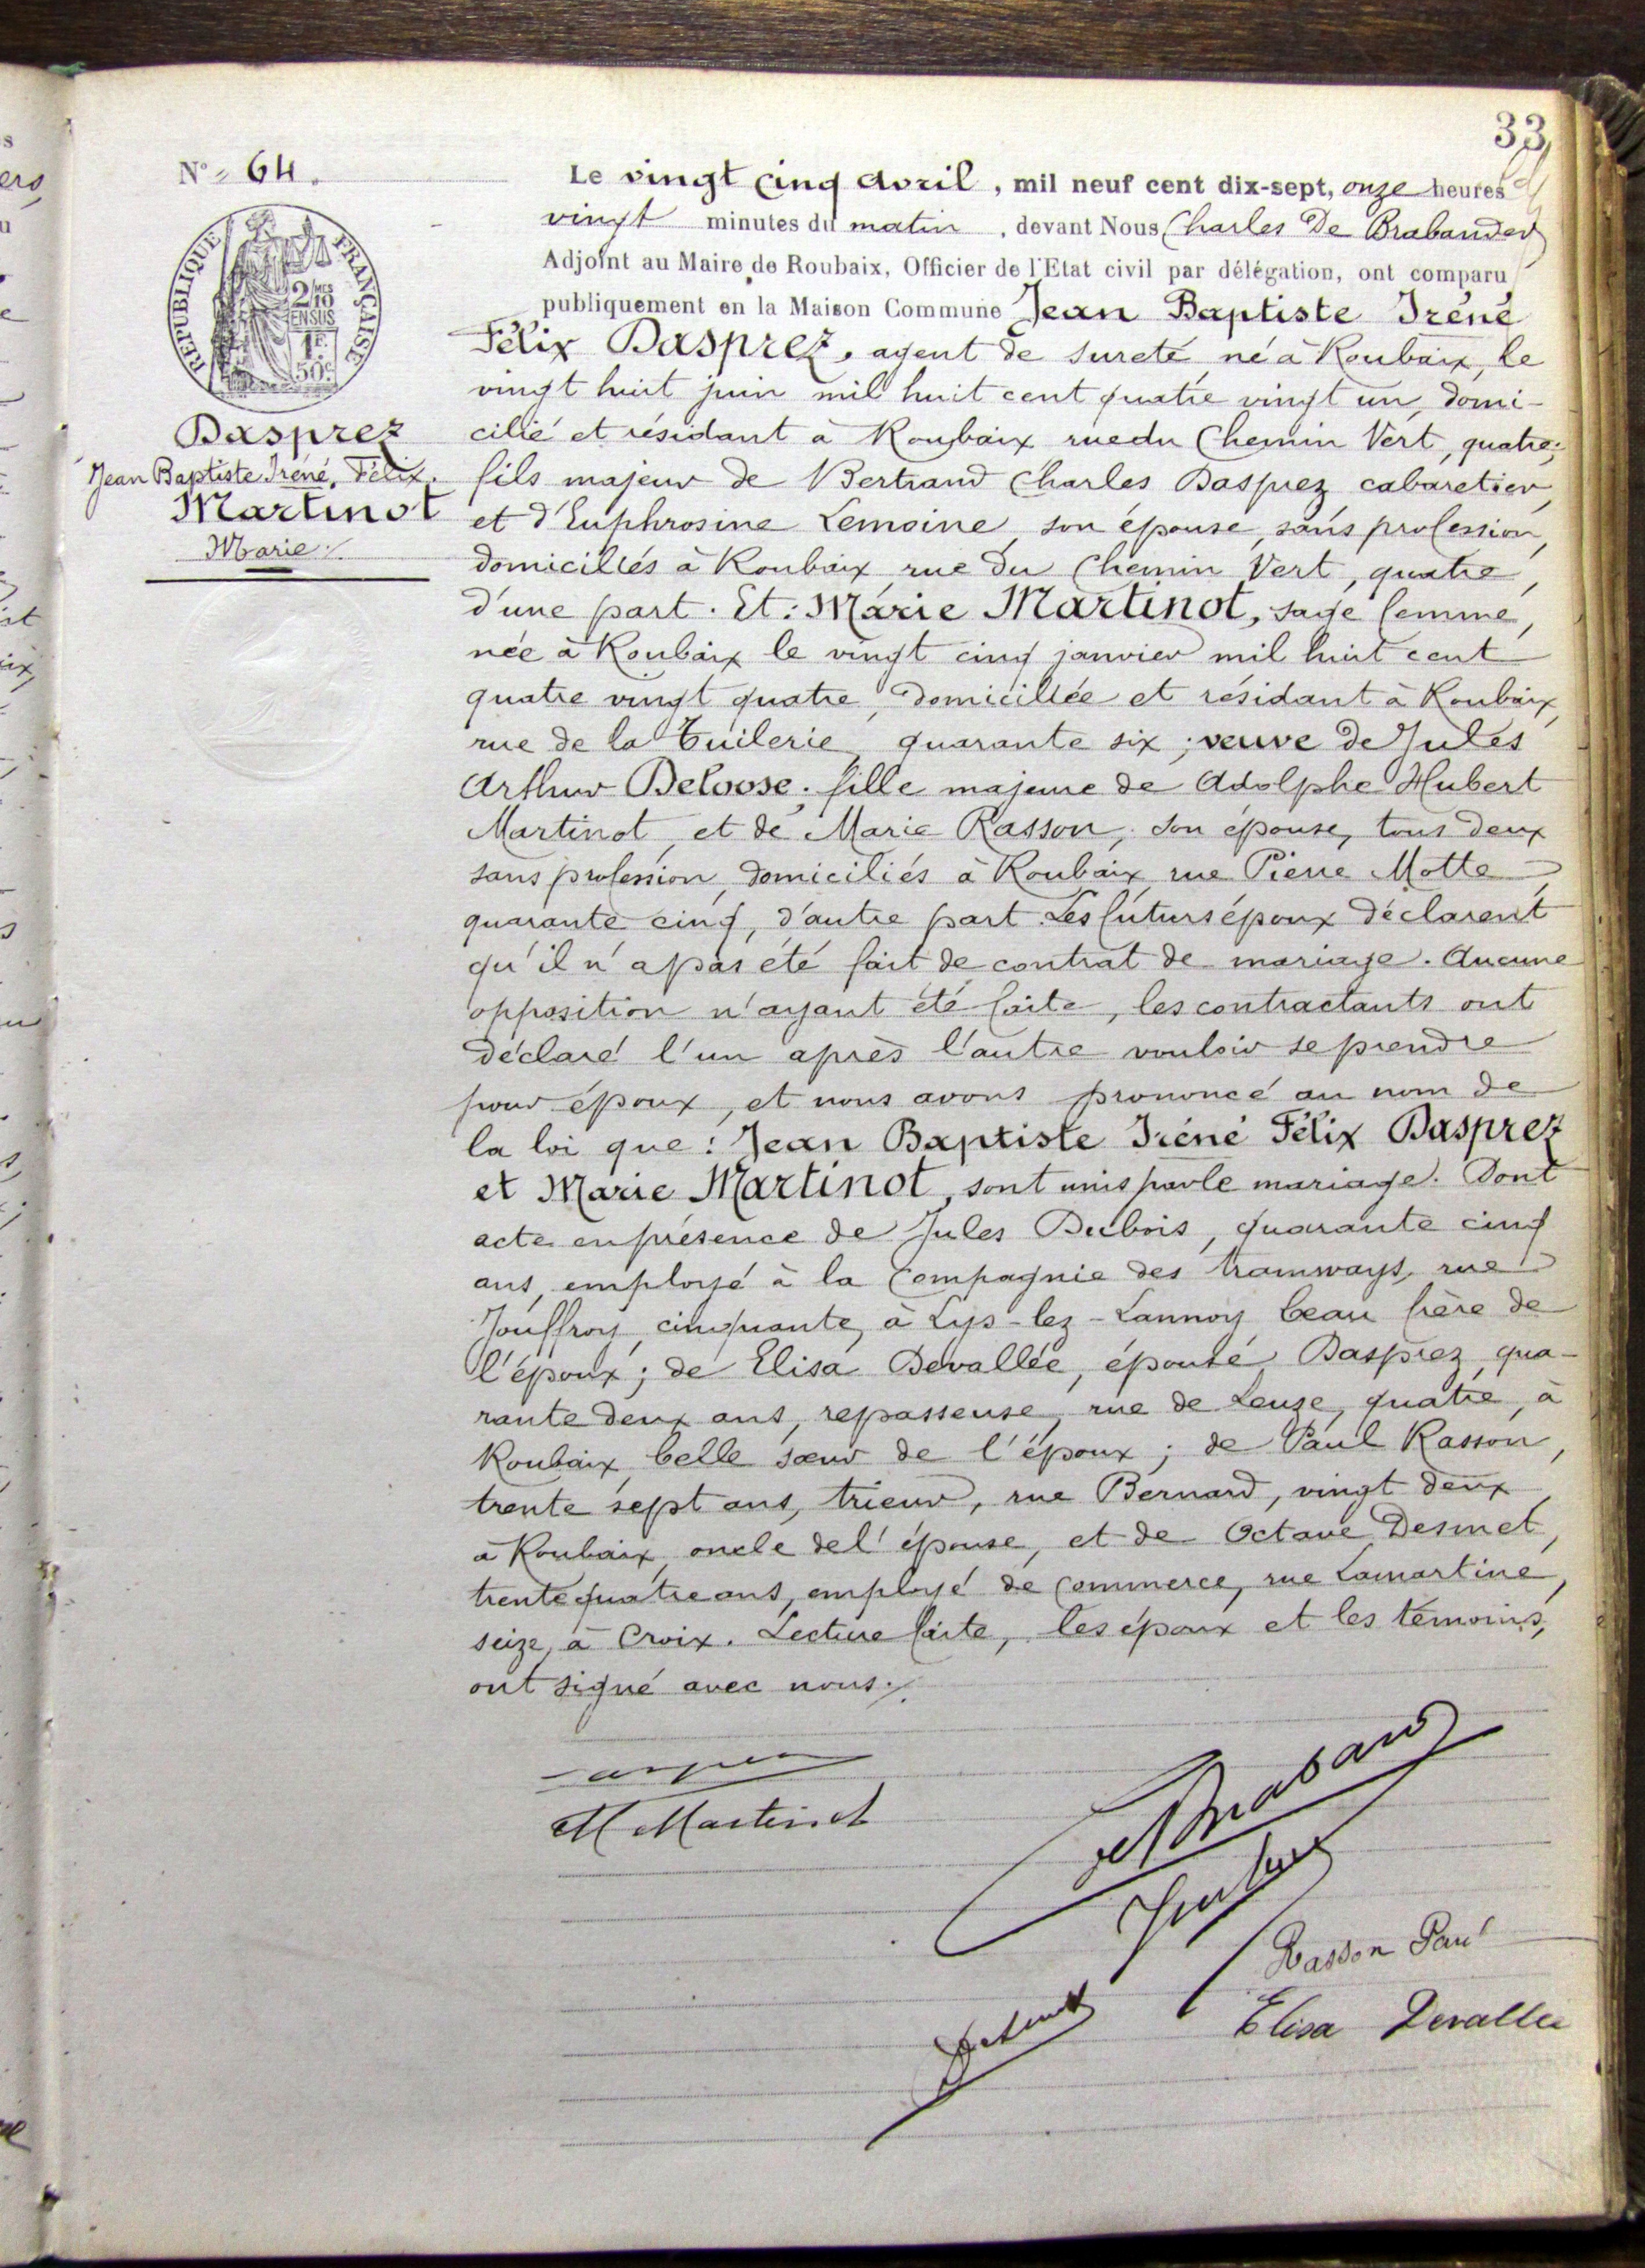 33
N° 64.
REPUBLIQUE FRANÇAISE
2/10 MES
EN SUS
1F.
50c
Dasprez
Jean Baptiste Iréné, Félix.
Martinot
Marie
Le vingt cinq avril, mil neuf cent dix-sept, onze heures
vingt minutes du matin, devant Nous Charles De Brabander
Adjoint au Maire de Roubaix, Officier de l'Etat civil par délégation, ont comparu
publiquement en la Maison Commune Jean Baptiste Iréné
Félix Dasprez, agent de sureté, né à Roubaix, le
vingt huit juin mil huit cent quatre vingt un, domi-
cilié et résidant à Roubaix rue du Chemin Vert, quatre;
fils majeur de Bertrand Charles Dasprez cabaretier,
et d'Euphrosine Lemoine, son épouse, sans profession,
domiciliés à Roubaix rue du Chemin Vert, quatre,
d'une part. Et: Marie Martinot, sage femme,
née à Roubaix le vingt cinq janvier mil huit cent
quatre vingt quatre, domiciliée et résidant à Roubaix,
rue de la Tuilerie, quarante six; veuve de Jules
Arthur Deloose; fille majeure de Adolphe Hubert
Martinot, et de Marie Rasson, son épouse, tous deux
sans profession, domiciliés à Roubaix rue Pierre Motte
quarante cinq, d'autre part. Les futurs époux déclarent
qu'il n'a pas été fait de contrat de mariage. Aucune
opposition n'ayant été faite, les contractants ont
déclaré l'un après l'autre vouloir se prendre
pour époux, et nous avons prononcé au nom de
la loi que: Jean Baptiste Iréné Félix Dasprez
et Marie Martinot, sont unis par le mariage. Dont
acte en présence de Jules Dubois, quarante cinq
ans, employé à la Compagnie des tramways, rue
Jouffroy, cinquante, à Lys-lez-Lannoy beau frère de
l'époux; de Elisa Devallée, épouse Dasprez, qua-
rante deux ans, repasseuse, rue de Leuze, quatre, à
Roubaix, belle sœur de l'époux; de Paul Rasson,
trente sept ans, trieur, rue Bernard, vingt deux,
à Roubaix, oncle de l'épouse, et de Octave Desmet,
trente quatre ans, employé de commerce, rue Lamartine,
seize, à Croix. Lecture faite, les époux et les témoins,
ont signé avec nous.
M Martinot
Rasson Paul
Elisa Devallée